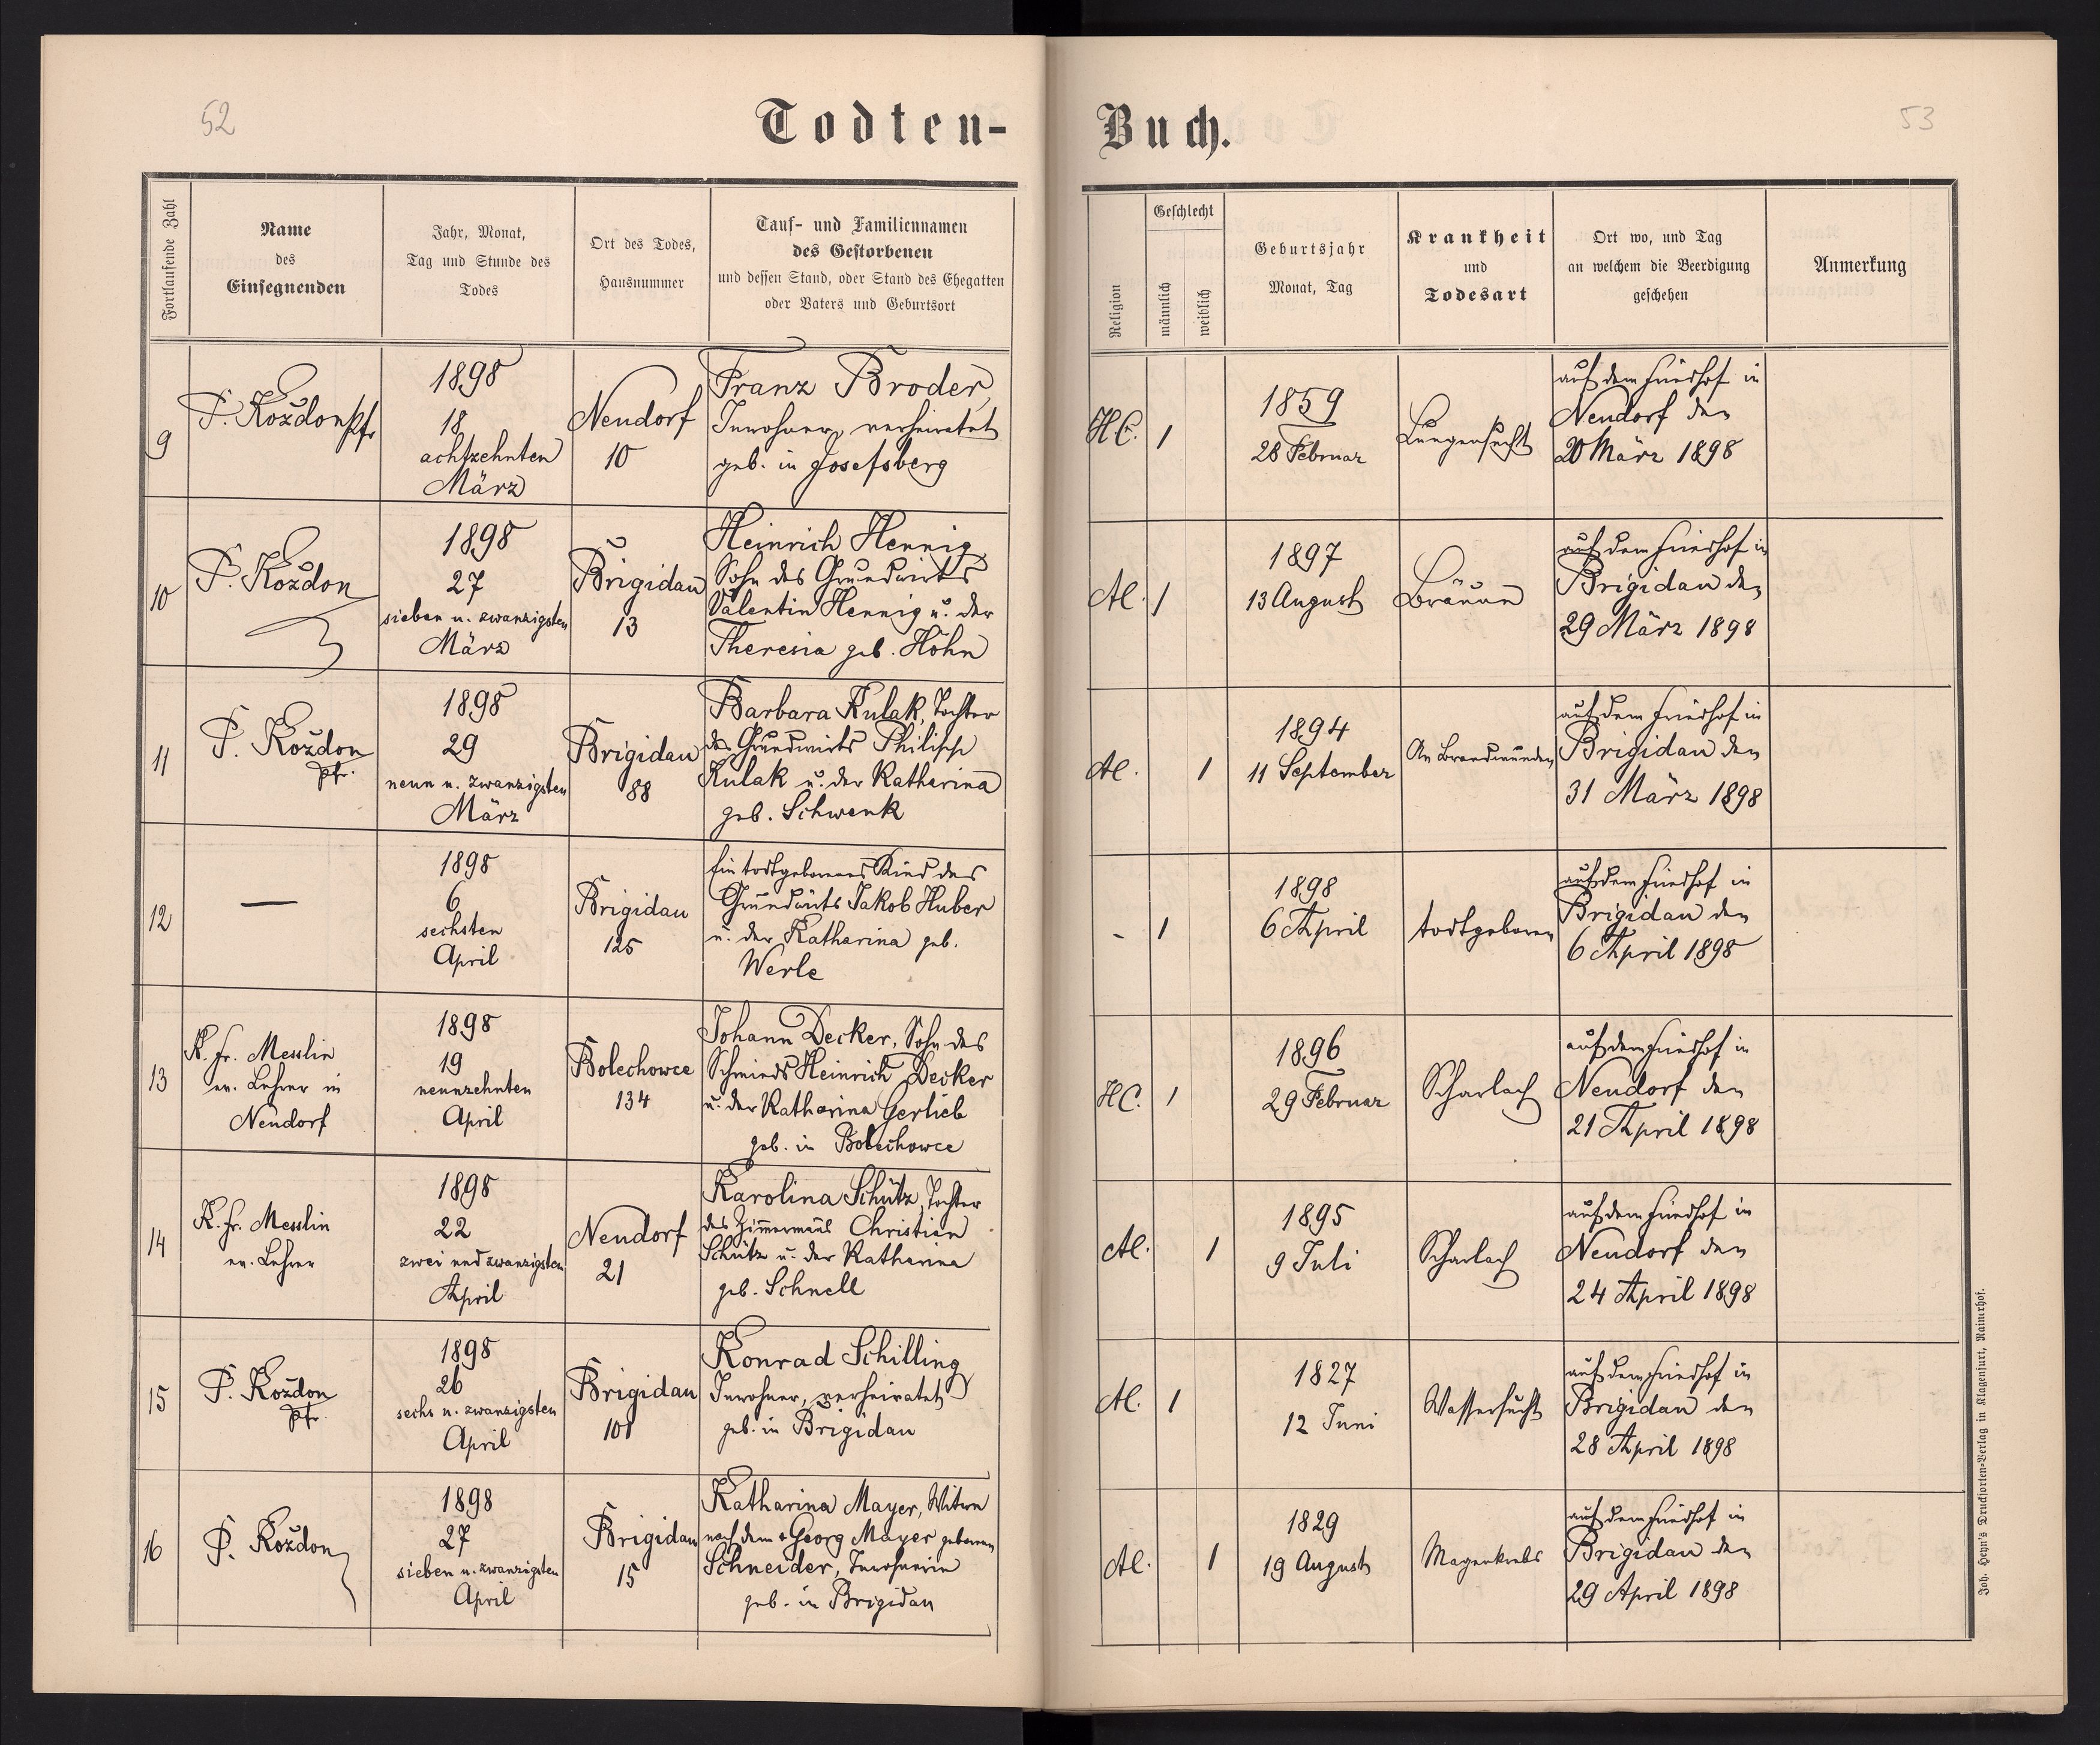 52
Todten-
Fortlaufende Zahl
Name
des
Einsegnenden
Jahr, Monat,
Tag und Stunde des
Todes
Ort des Todes,
Hausnummer
Tauf- und Familiennamen
des Gestorbenen
und dessen Stand, oder Stand des Ehegatten
oder Vaters und Geburtsort
9
P. Kozdon pfr
1898
18
achtzehnten
März
Neudorf
10
Franz Broder,
Inwohner, verheiratet
geb. in Josefsberg
10
P. Kozdon
1898
27
sieben u. zwanzigsten
März
Brigidau
13
Heinrich Hennig,
Sohn des Grundwirts
Valentin Hennig u. der
Theresia geb. Höhn
11
P. Kozdon
pfr.
1898
29
neun u. zwanzigsten
März
Brigidau
88
Barbara Kulak, Tochter
des Grundwirts Philipp
Kulak u. der Katharina
geb. Schwenk
12
—
1898
6
sechsten
April
Brigidau
125
Ein todtgeborenes Kind des
Grundwirts Jakob Huber
u. der Katharina geb.
Werle
13
K. Fr. Messlin
ev. Lehrer in
Neudorf
1898
19
neunzehnten
April
Bolechowce
134
Johann Decker, Sohn des
Schmieds Heinrich Decker
u. der Katharina Gerlieb
geb. in Bolechowce
14
K. Fr. Messlin
ev. Lehrer
1898
22
zwei und zwanzigsten
April
Neudorf
21
Karolina Schütz, Tochter
des Zimmermans Christian
Schütz u. der Katharina
geb. Schnell
15
P. Kozdon
pfr.
1898
26
sechs u. zwanzigsten
April
Brigidau
101
Konrad Schilling
Inwohner, verheiratet
geb. in Brigidau
16
P. Kozdon
1898
27
sieben u. zwanzigsten
April
Brigidau
15
Katharina Mayer, Witwe
nach dem + Georg Mayer geborene
Schneider, Inwohnerin
geb. in Brigidau
53
Buch.
Religion
Geschlecht
männlich
weiblich
Geburtsjahr
Monat, Tag
Krankheit
und
Todesart
Ort wo, und Tag
an welchem die Beerdigung
geschehen
Anmerkung
H.C.
1
1859
28 Februar
Lungensucht
auf dem Friedhof in
Neudorf den
20 März 1898
A.C.
1
1897
13 August
Bräune
auf dem Friedhof in
Brigidau den
29 März 1898
A.C.
1
1894
11 September
An Brandwunden
auf dem Friedhof in
Brigidau den
31 März 1898
-
1
1898
6 April
todtgeboren
auf dem Friedhof in
Brigidau den
6 April 1898
H.C.
1
1896
29 Februar
Scharlach
auf dem Friedhof in
Neudorf den
21 April 1898
A.C.
1
1895
9 Juli
Scharlach
auf dem Friedhof in
Neudorf den
24 April 1898
A.C.
1
1827
12 Juni
Wassersucht
auf dem Friedhof in
Brigidau den
28 April 1898
A.C.
1
1829
19 August
Magenkrebs
auf dem Friedhof in
Brigidau den
29 April 1898
Joh. Heyn's Drucksorten-Verlag in Klagenfurt, Rainerhof.